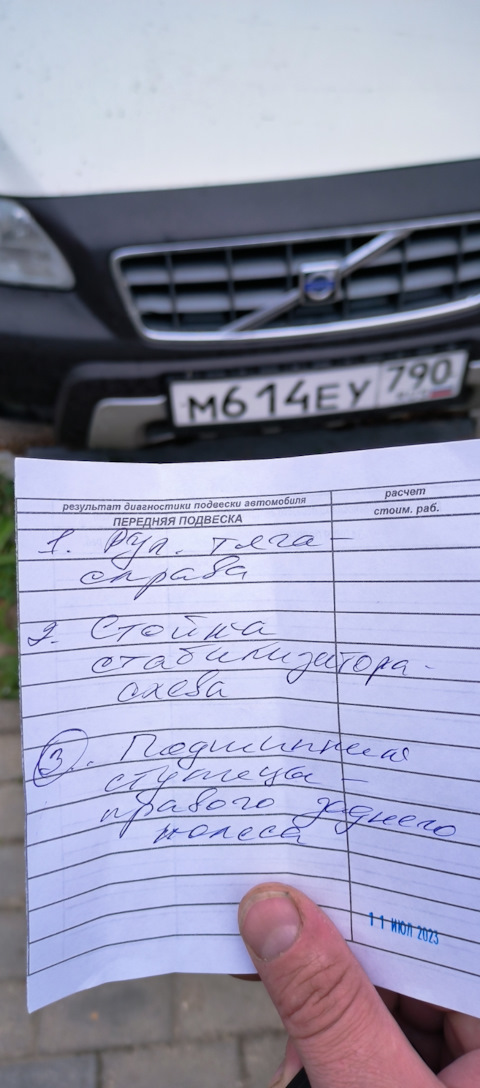 М614ЕУ 790
результат диагностики подвески автомобиля
расчет
ПЕРЕДНЯЯ ПОДВЕСКА
стоим. раб.
1. Рул. тяга -
справа
2. Стойка
стабилизатора -
слева
3. Подшипник
ступицы -
правого заднего
колеса
11 ИЮЛ 2023